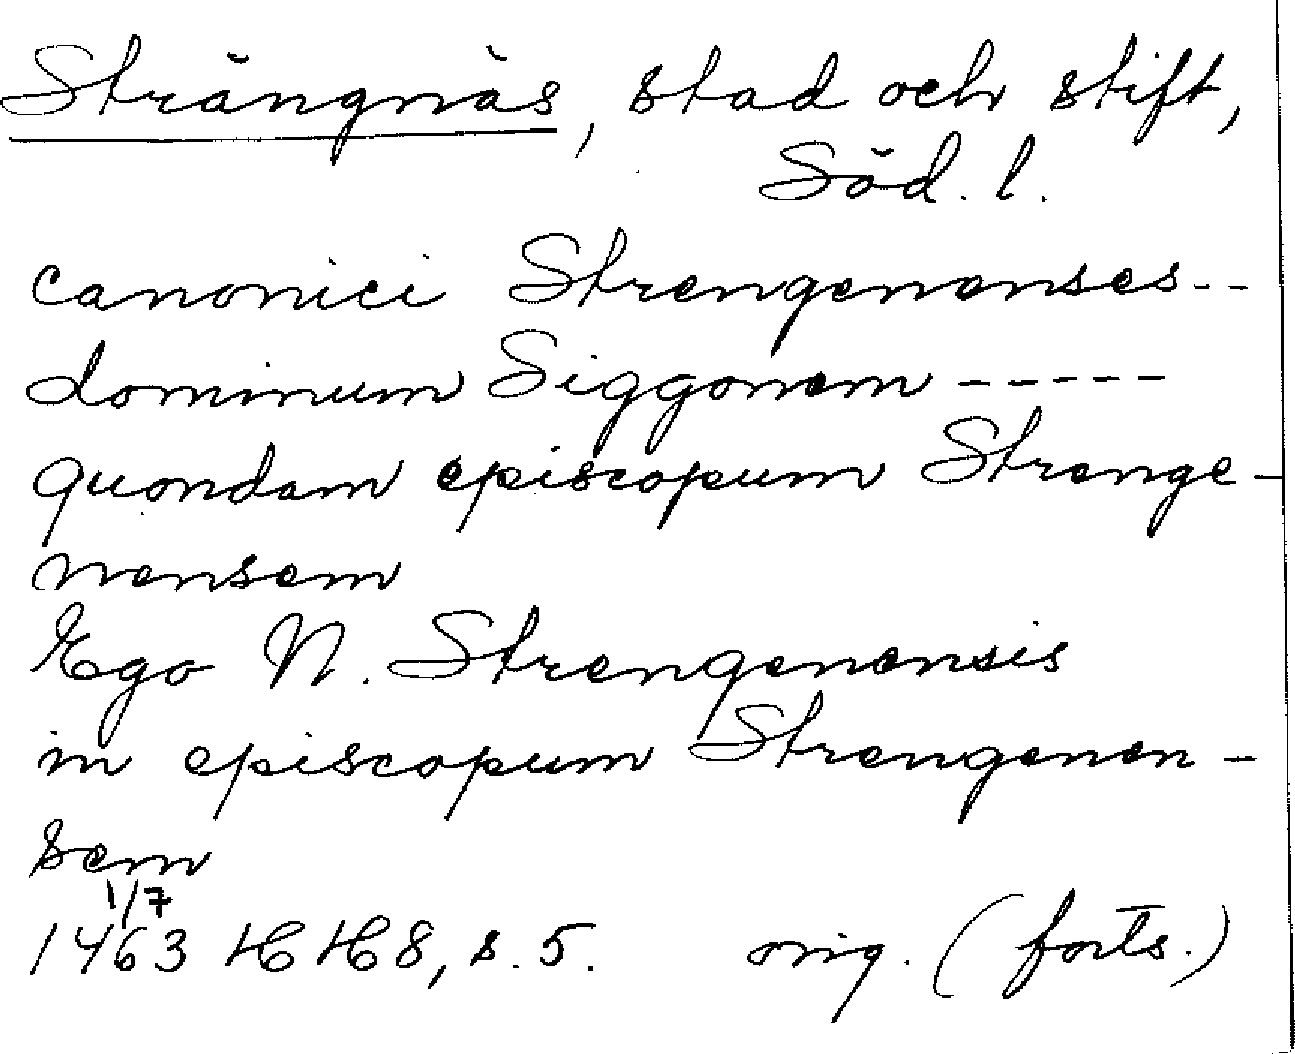 Strängnäs, stad och stift,
Söd. l.
canonici Strengenenses --
dominum Siggonem -----
quondam episcopum Strenge-
nensem
Ego N. Strengenensis
in episcopum Strengenen-
sem
1/7
1463 HH 8, s. 5. orig. (forts.)